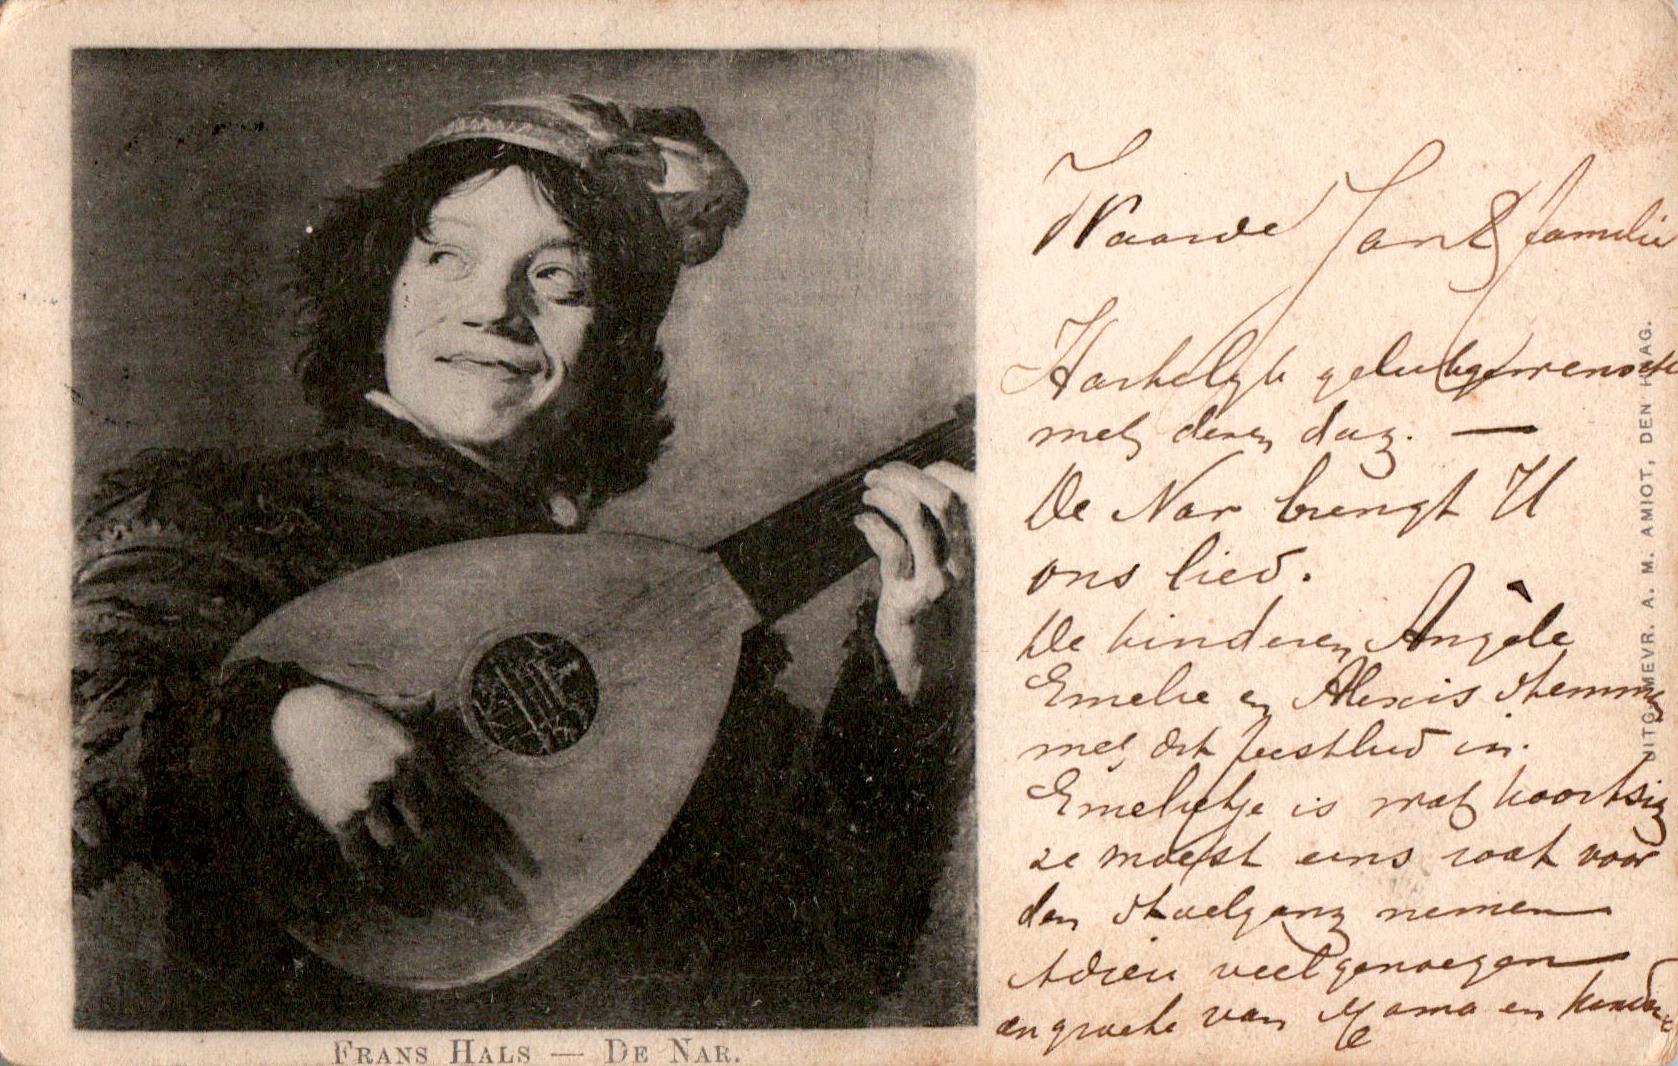 Waarde Jan & familie
Hartelijk gelukgewenscht
met dezen dag. —
De Nar brengt U
ons lied.
De kinderen Angèle
Emelie en Alexis stemmen
met dit feestlied in.
Emelietje is wat koortsig
ze moest eens wat voor
den stoelgang nemen
Adieu veel genoegen
en groete van Mama en
FRANS HALS — DE NAR.
UITG. MEVR. A. M. AMIOT, DEN HAAG.